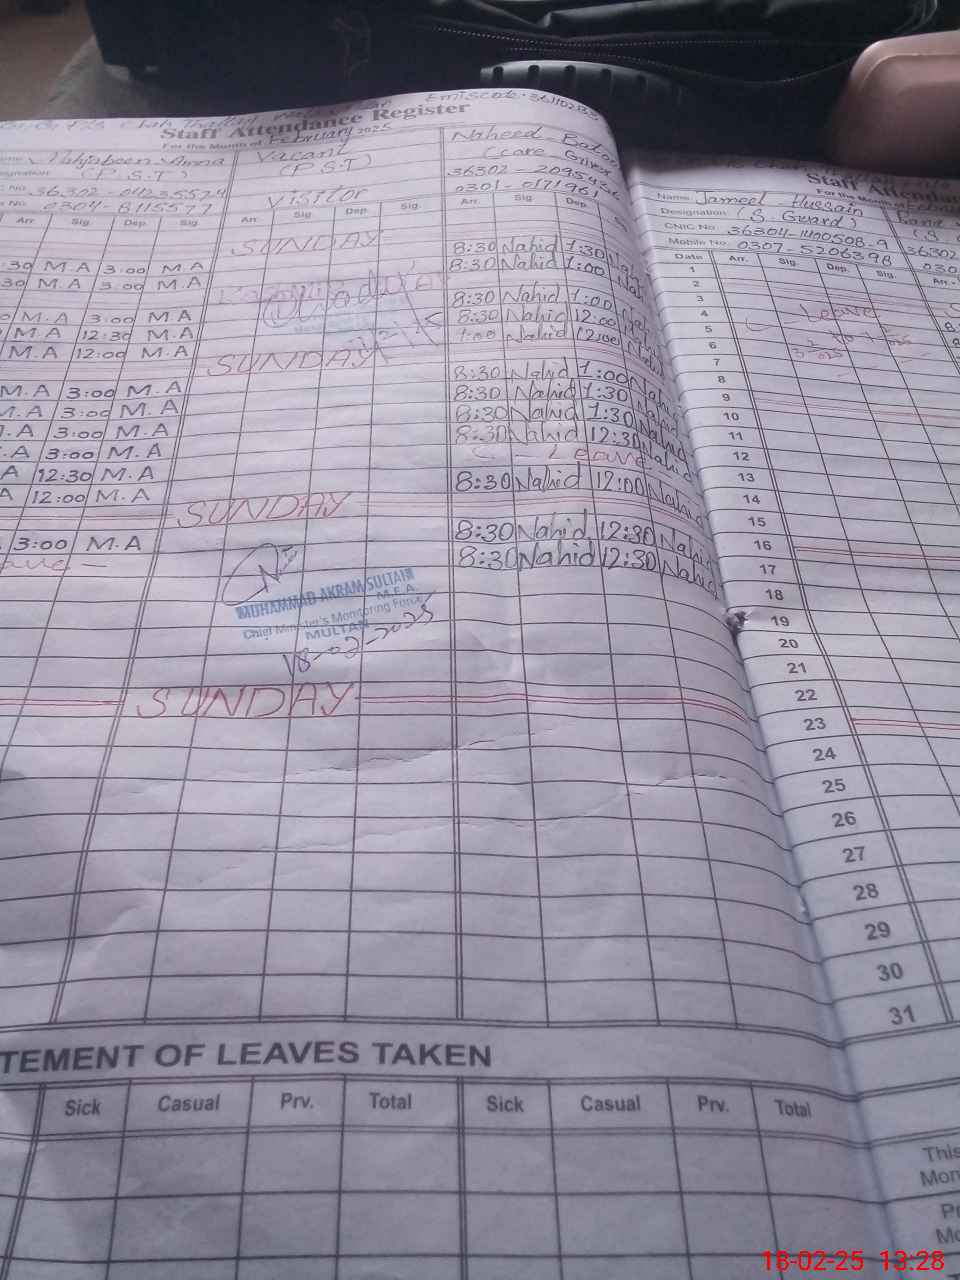 Emiscode. 361102133
Staff Attendance Register
For the Month of February 2025
Mahjabeen Amna
(P.S.T)
36302-0112355
0304-8115577
Vacant
(P.S.T)
Visitor
Naheed
(Care Giver
36302-2095
0301-0171961
Arr. Sig. Dep. Sig. Arr. Sig. Dep. Sig. Arr. Sig. Dep.
SUNDAY
8:30 Nahid 1:30 Nahid
:30 M.A 3:00 M.A 8:30 Nahid 1:00 Nahid
30 M.A 3:00 M.A
DAY
8:30 Nahid 1:00
M.A 3:00 M.A 8:30 Nahid 12:00
M.A 12:30 M.A Nahid 12:00
M.A 12:00 M.A
SUNDAY
8:30 Nahid 1:00 Nahid
M.A 3:00 M.A 8:30 Nahid 1:30 Nahid
M.A 3:00 M.A 8:30 Nahid 1:30 Nahid
.A 3:00 M.A 8:30 Nahid 12:30 Nahid
.A 3:00 M.A Leave
A 12:30 M.A 8:30 Nahid 12:00 Nahid
A 12:00 M.A
SUNDAY
8:30 Nahid 12:30 Nahid
3:00 M.A 8:30 Nahid 12:30 Nahid
MUHAMMAD AKRAM SULTAN
M.E.A.
Chief Minister's Monitoring Force
MULTAN
18-02-2025
SUNDAY
TEMENT OF LEAVES TAKEN
Sick Casual Prv. Total Sick Casual Prv. Total
Staff Atten
For the M
Name: Jameel Hussain
Designation: (S. Guard)
CNIC No. 36304-1400508-9 36302
Mobile No. 0307-5206398 030
Date Arr. Sig. Dep. Sig. Arr.
1
2
3
4 Leave
5
6
7
8
9
10
11
12
13
14
15
16
17
18
19
20
21
22
23
24
25
26
27
28
29
30
31
This
Mon
18-02-25 13:28